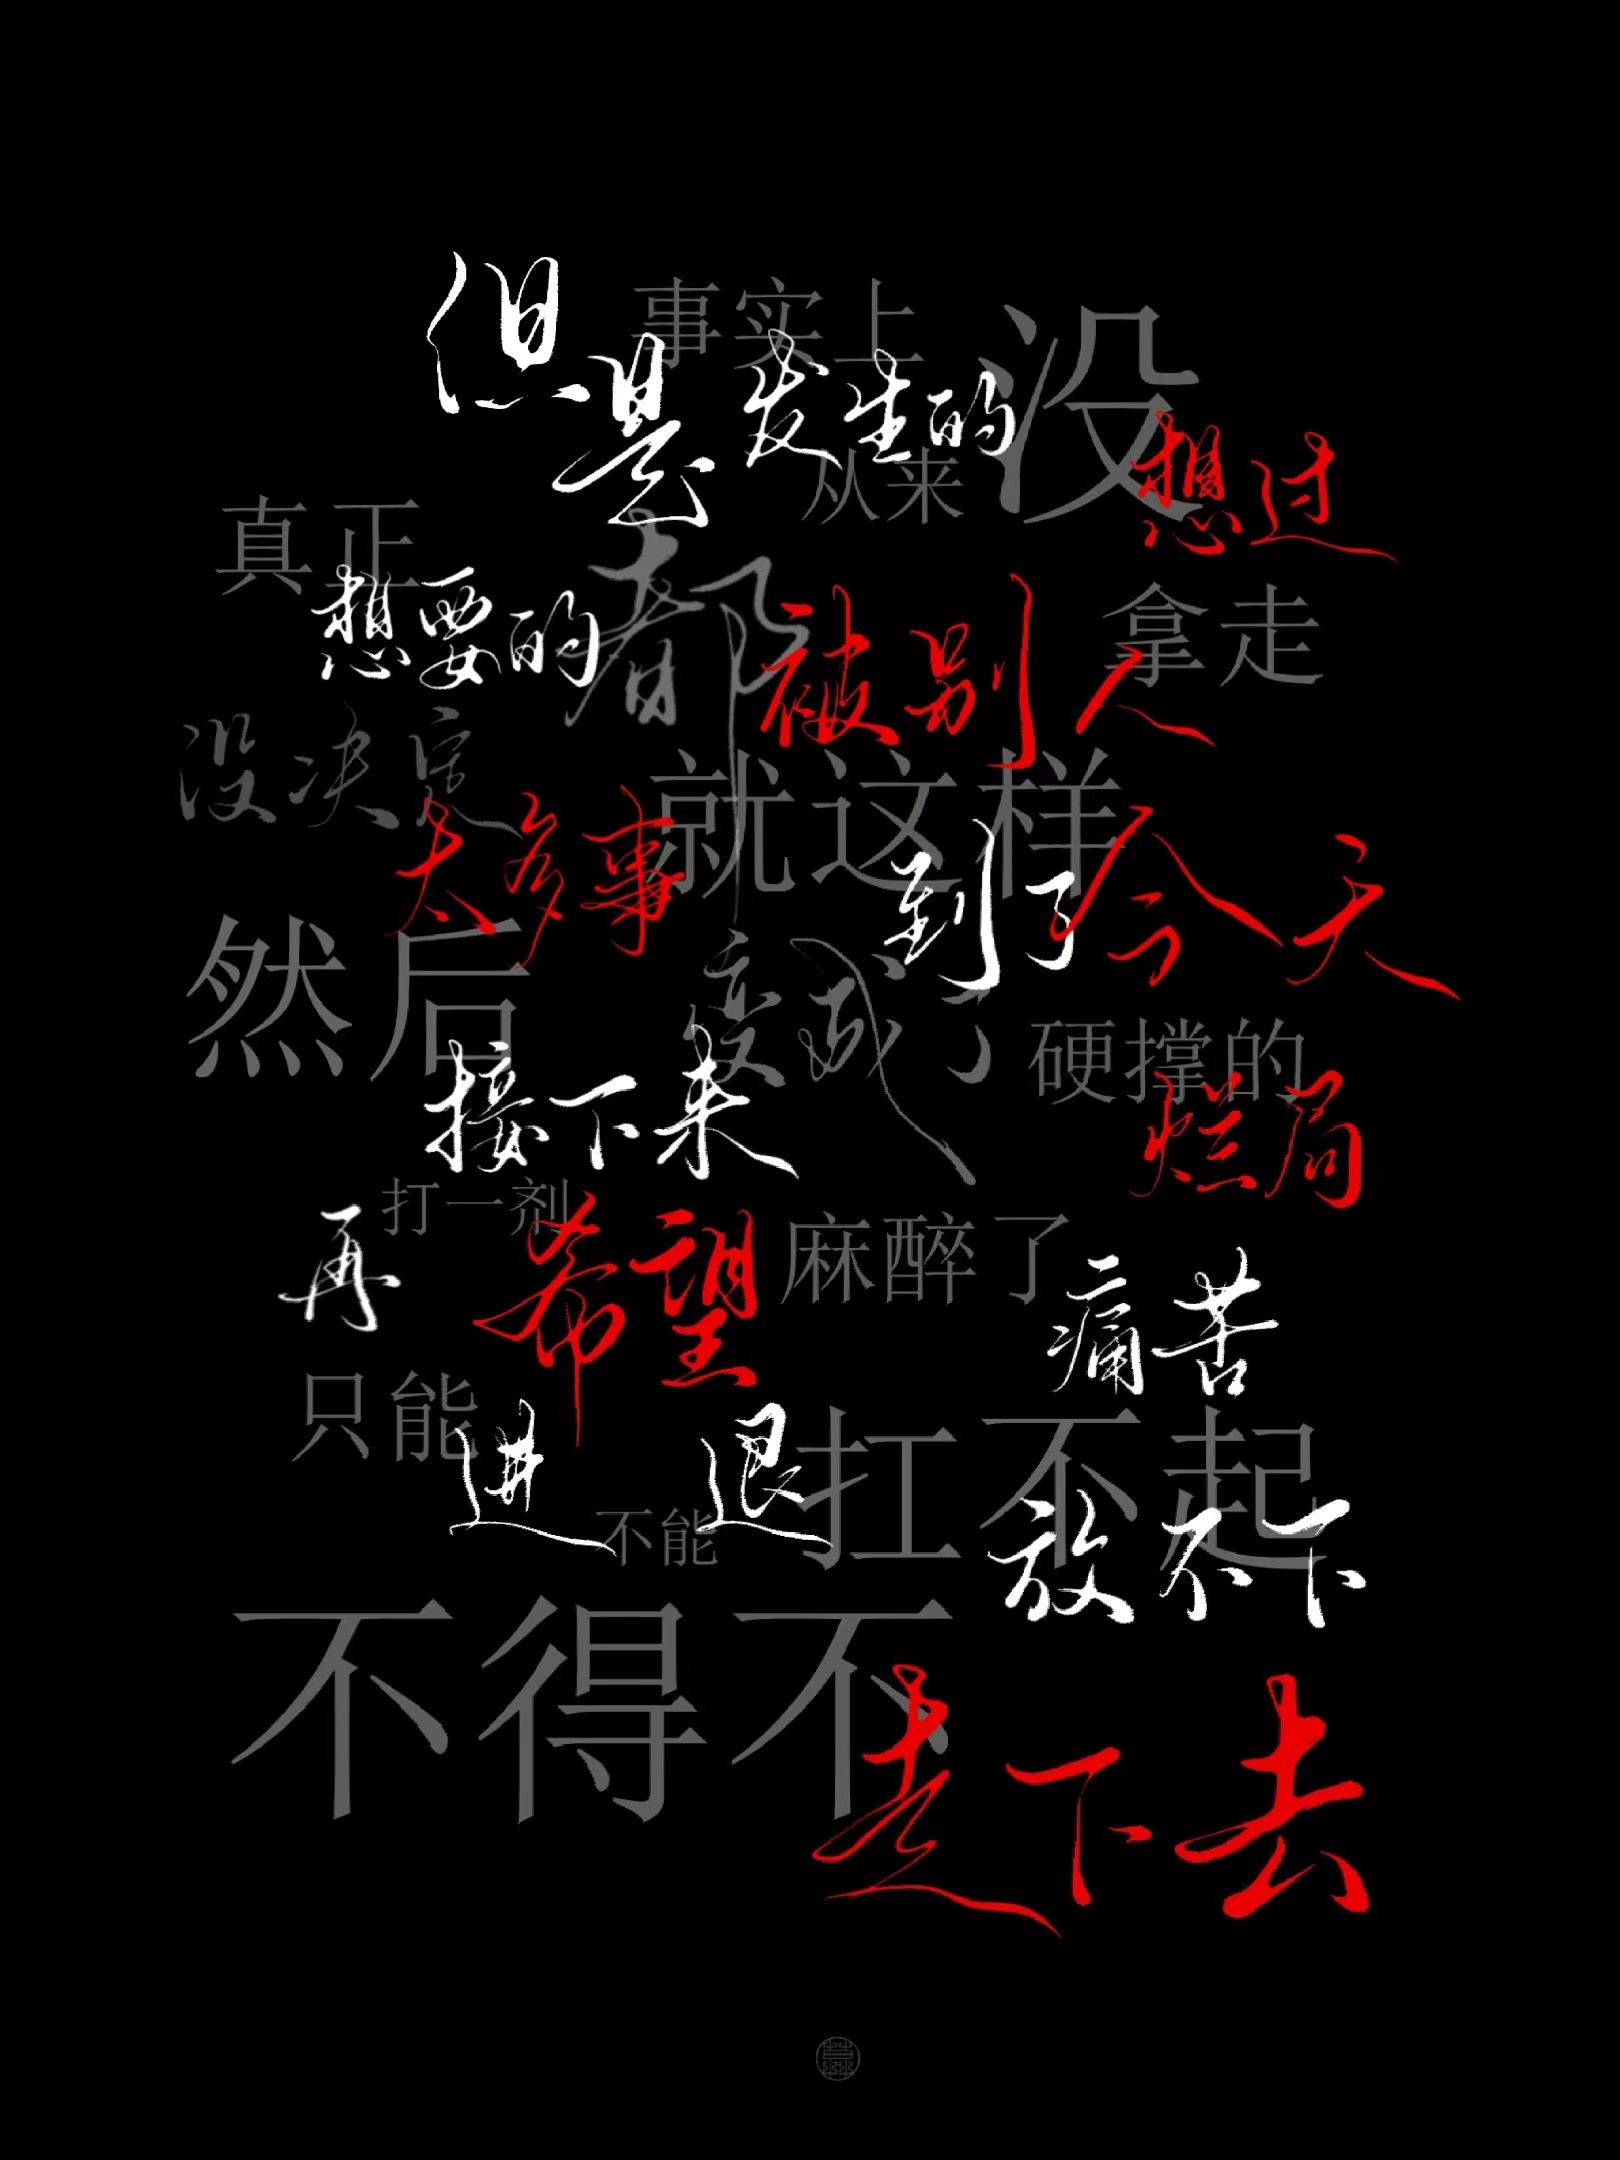 但是事实上发生的从来没想过
真正想要的都被别人拿走
没决定太多事就这样到了今天
然后接下来变成了硬撑的烂局
再打一剂希望麻醉了痛苦
只能进不能退扛不起放不下
不得不走下去